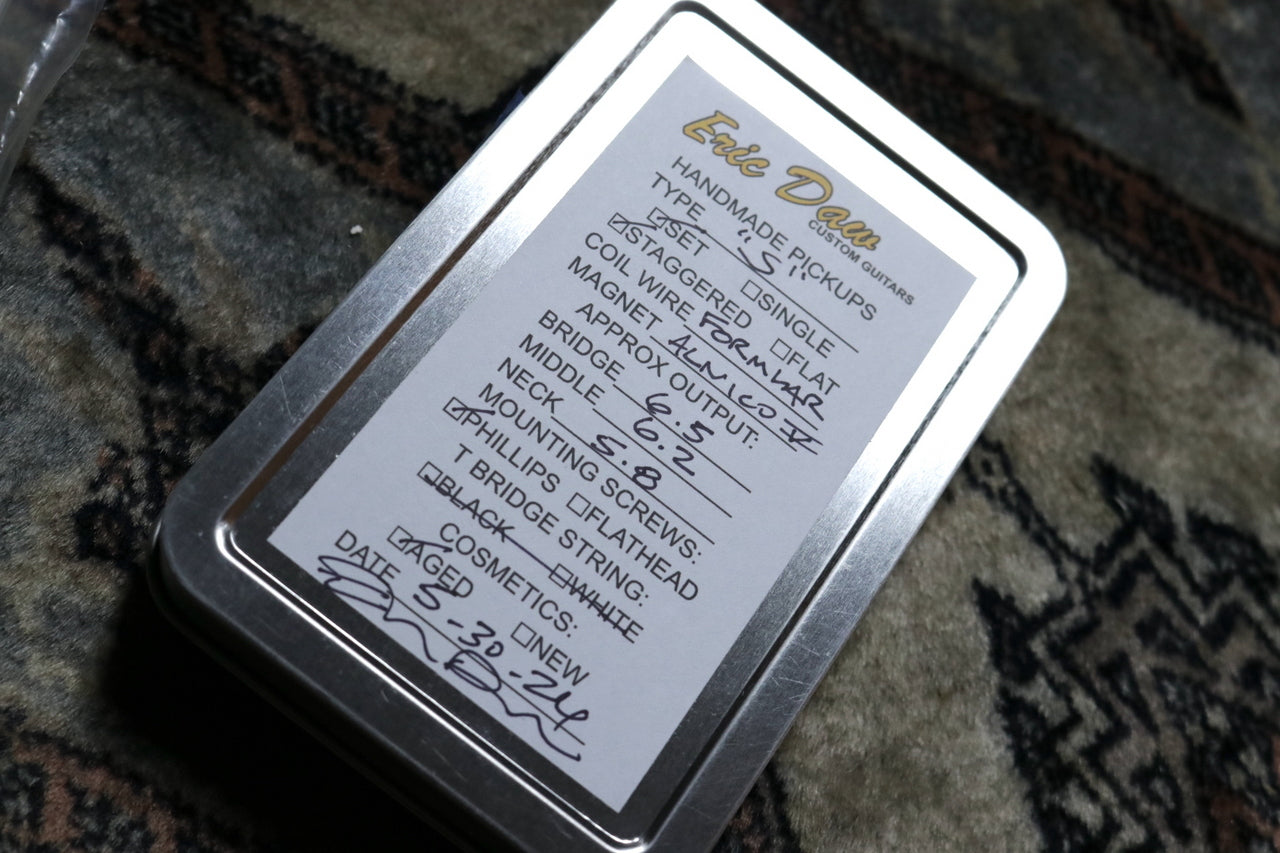 Eric Daw
CUSTOM GUITARS
HANDMADE PICKUPS
TYPE "S"
SET SINGLE
STAGGERED FLAT
COIL WIRE FORMVAR
MAGNET ALNICO V
APPROX OUTPUT:
BRIDGE 6.5
MIDDLE 6.2
NECK 5.8
MOUNTING SCREWS:
PHILLIPS FLATHEAD
T BRIDGE STRING:
BLACK WHITE
COSMETICS:
AGED NEW
DATE 5-30-24